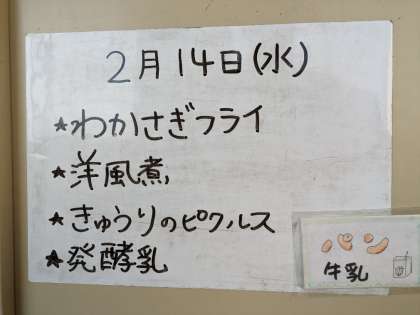 2月14日(水)
★わかさぎフライ
★洋風煮
★きゅうりのピクルス
★発酵乳
パン
牛乳